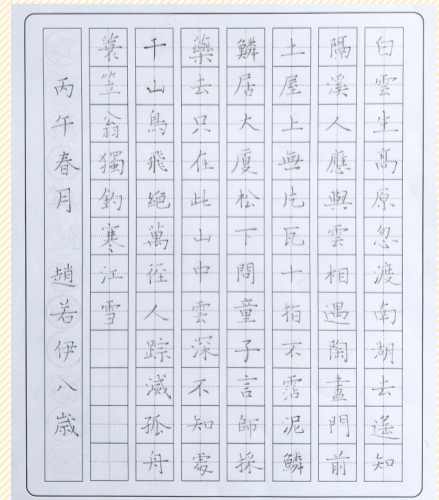 白雲生高原忽渡南湖去遥知
隔溪人應與雲相遇陶盡門前
土屋上無片瓦十指不霑泥鱗
鱗居大廈松下問童子言師採
藥去只在此山中雲深不知處
千山鳥飛絕萬徑人踪滅孤舟
蓑笠翁獨釣寒江雪
丙午春月 趙若伊八歲